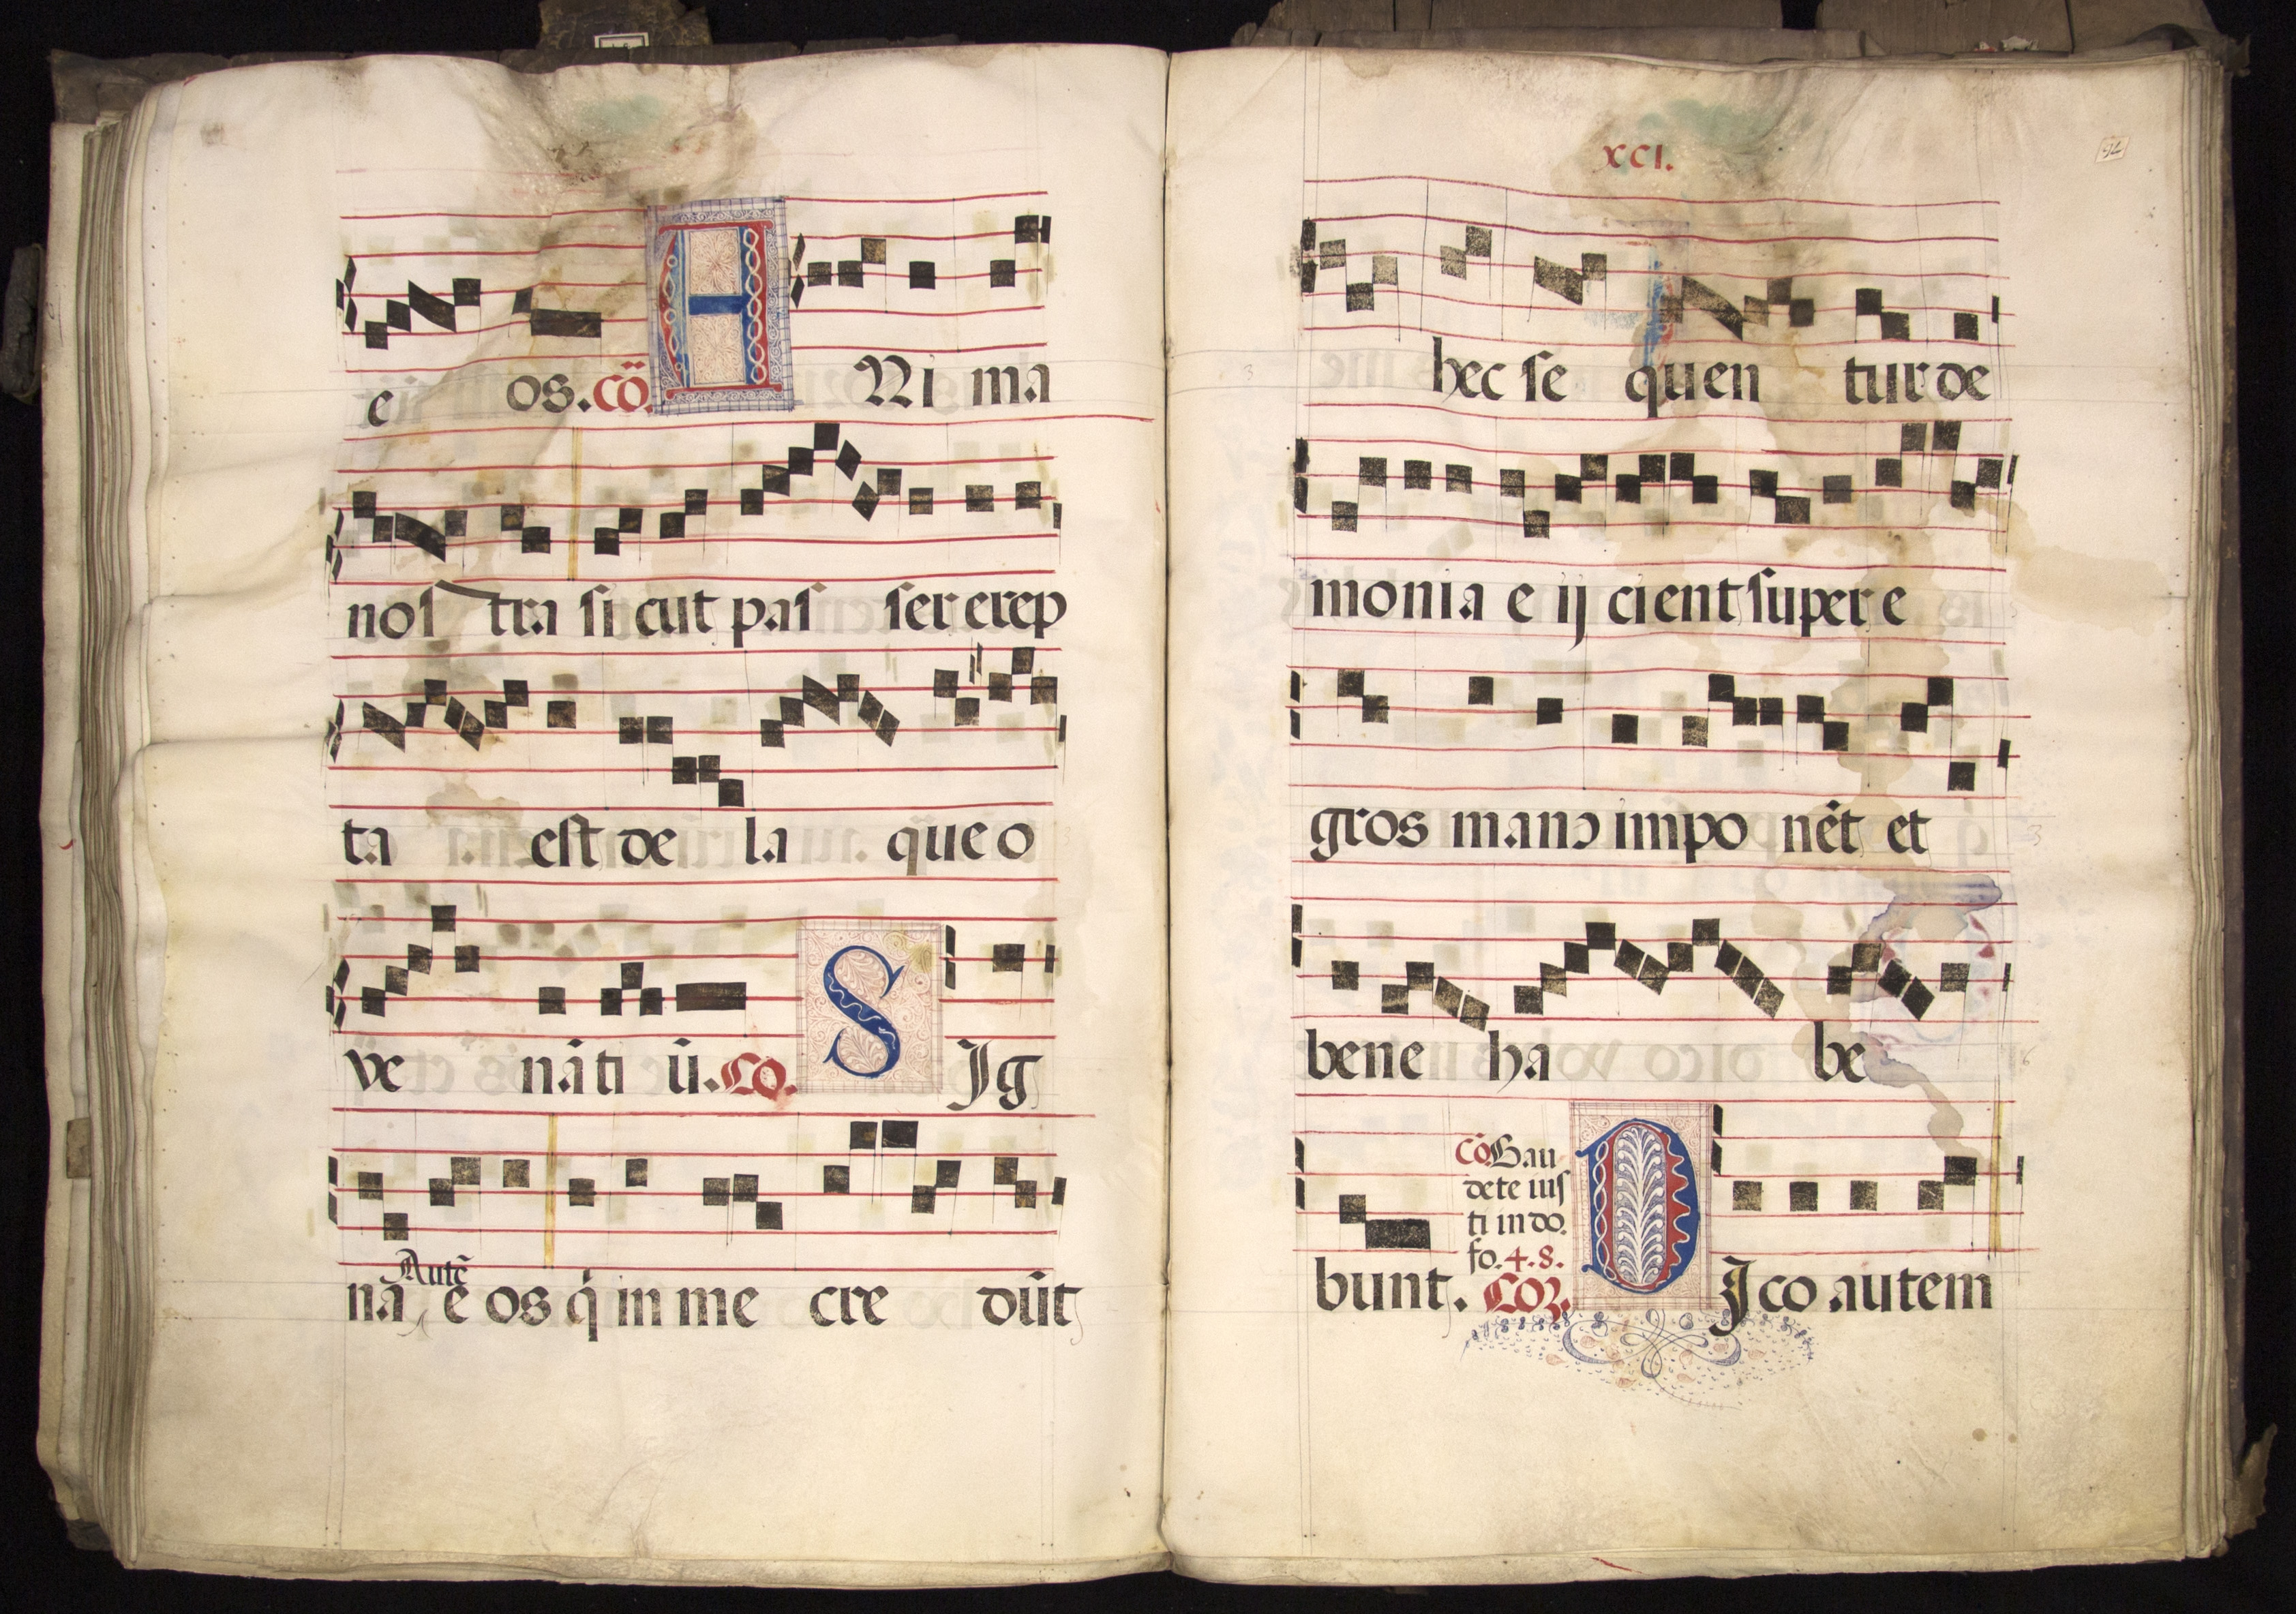 e os. cō. A Ni ma
nos tra si cut pas ser erep
ta est de la que o
ve nāti ū. CO. S Ig
Autē
na e os q̇ in me cre dūt
XCI.
hec se quen tur de
monia e ij cient super e
gros manꝰ impo nēt et
bene ha be
cō Gau
dete ius
ti in do.
fo. 4. 8.
bunt. CO2. D Ico autem